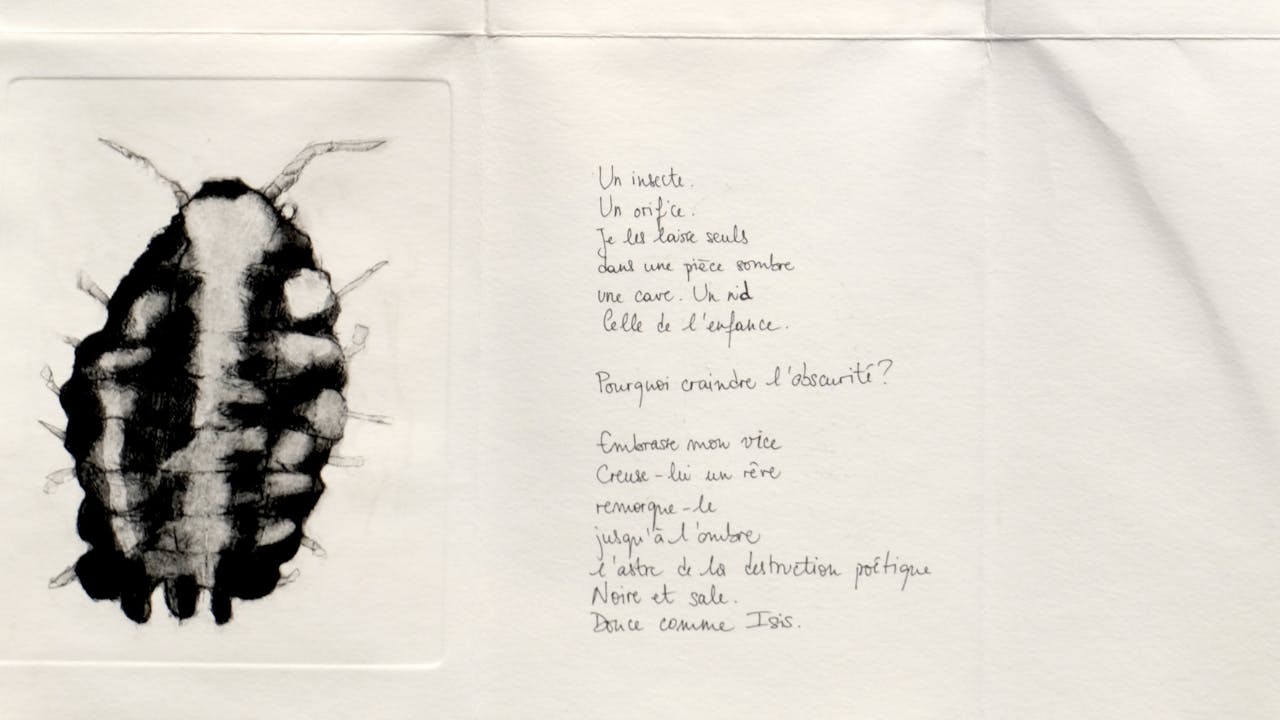 Un insecte.
Un orifice.
Je les laisse seuls
dans une pièce sombre
une cave. Un nid
Celle de l'enfance.
Pourquoi craindre l'obscurité?
Embrasse mon vice
Creuse-lui un rêve
remorque-le
jusqu'à l'ombre
l'astre de la destruction poétique
Noire et sale.
Douce comme Isis.